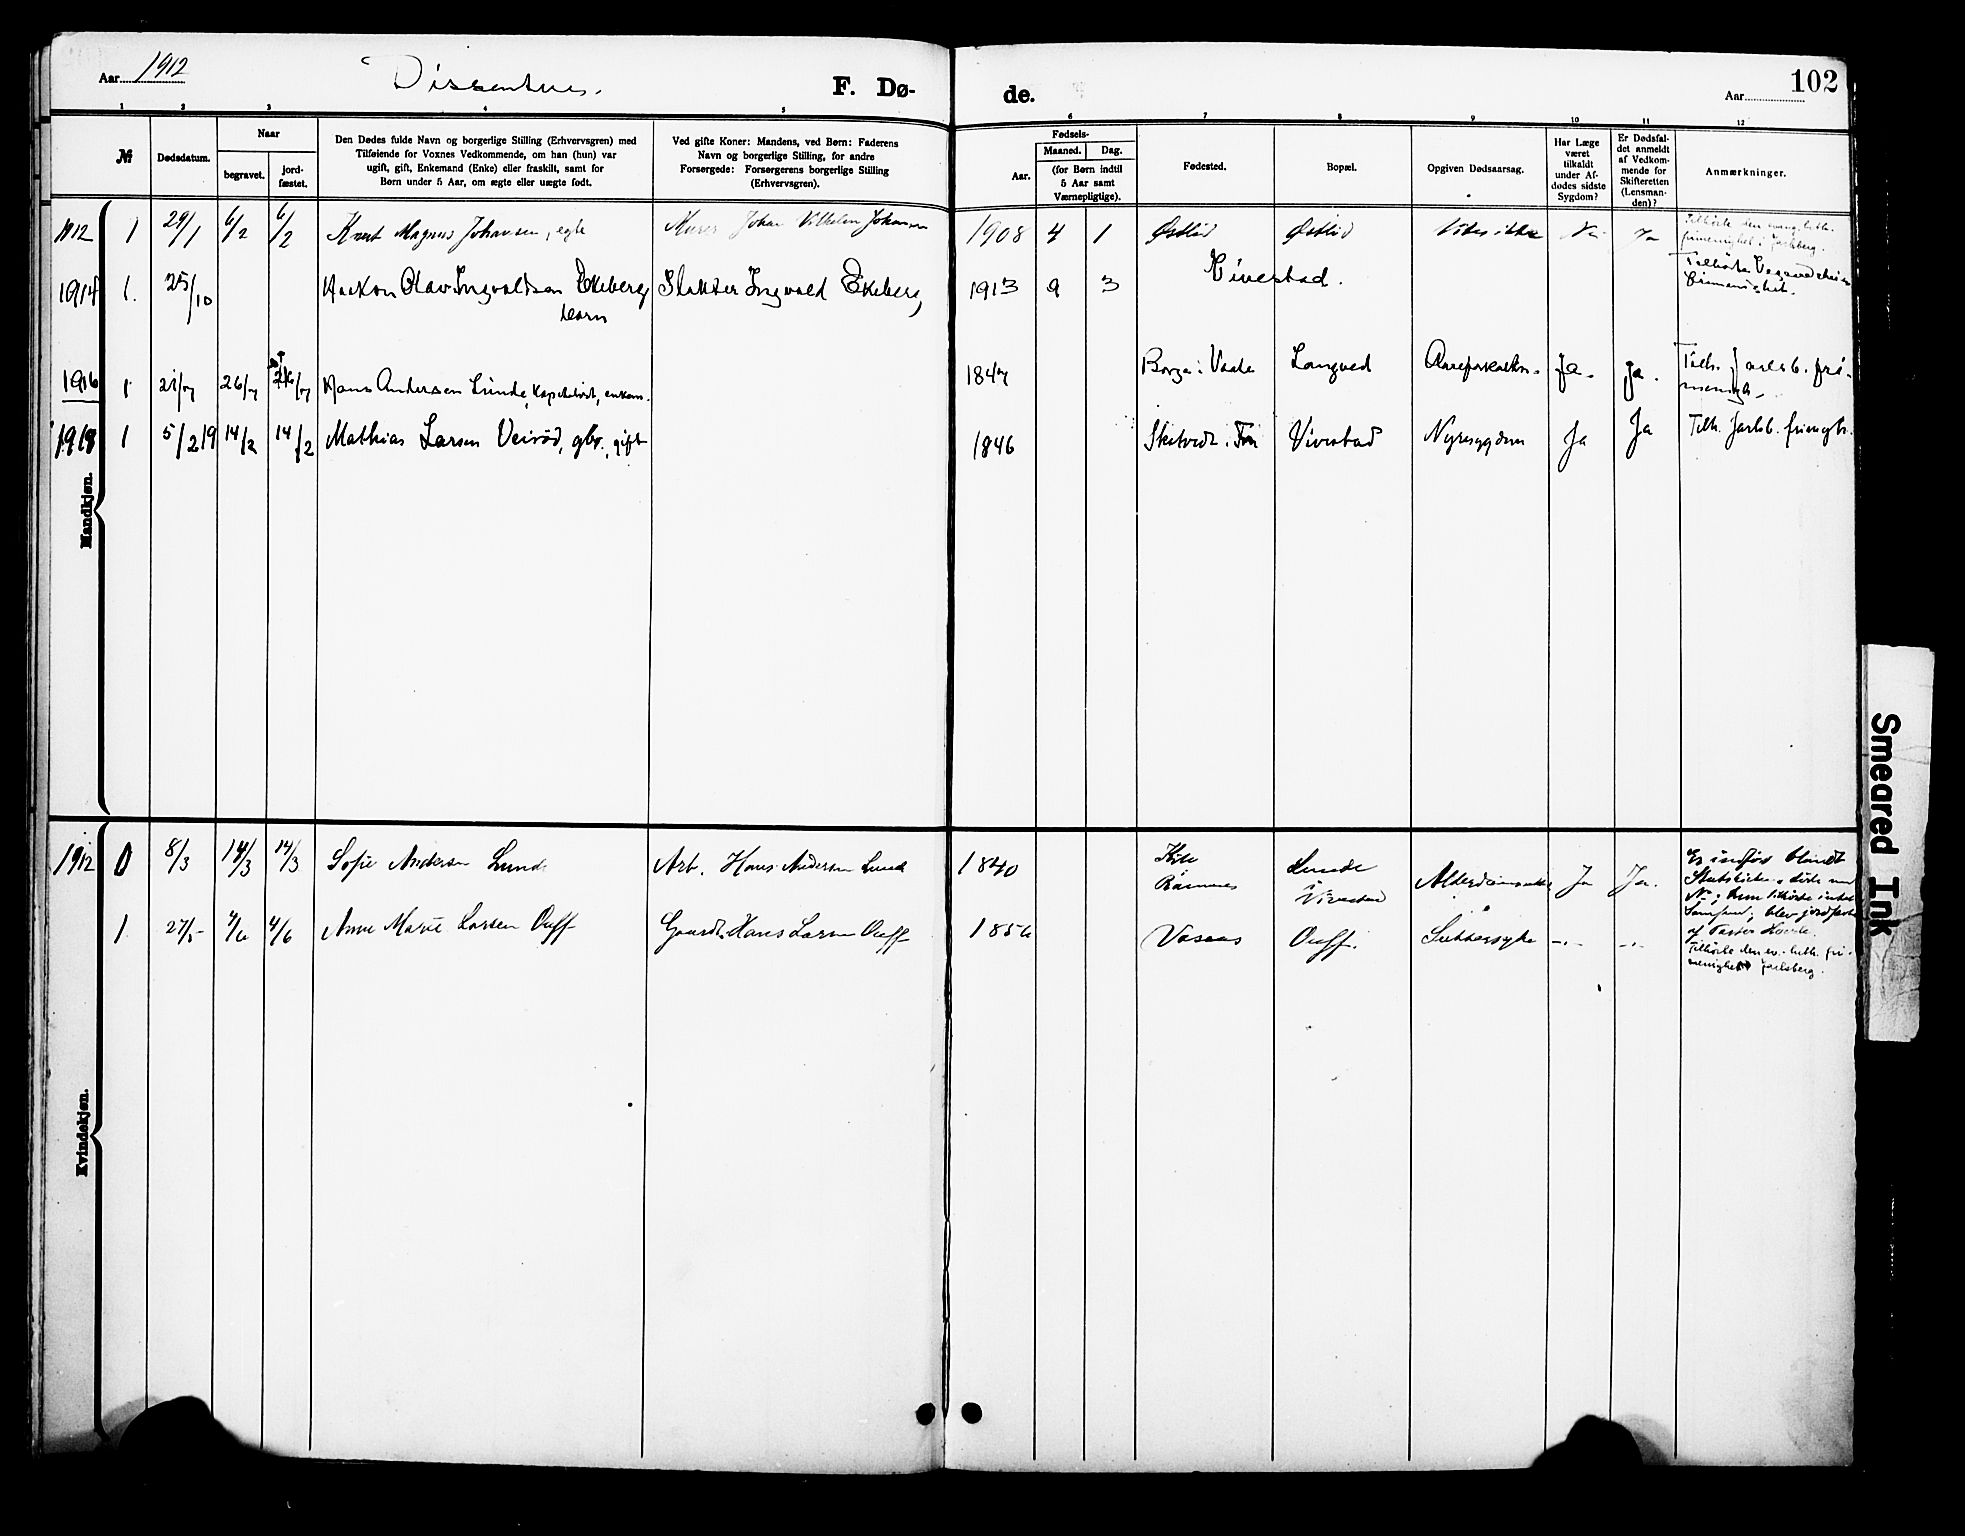 Aar 1912
Dissentere.
F. Dø-
de.
Aar
102
1 2 3 4 5
6 7 8 9 10 11 12
№
Dødsdatum.
Naar
begravet.
jord-
fæstet.
Den Dødes fulde Navn og borgerlige Stilling (Erhvervsgren) med
Tilføiende for Voxnes Vedkommende, om han (hun) var
ugift, gift, Enkemand (Enke) eller fraskilt, samt for
Børn under 5 Aar, om ægte eller uægte født.
Ved gifte Koner: Mandens, ved Børn: Faderens
Navn og borgerlige Stilling, for andre
Forsørgede: Forsørgerens borgerlige Stilling
(Erhvervsgren).
Fødsels-
Aar.
Maaned.
Dag.
(for Børn indtil
5 Aar samt
Værnepligtige).
Fødested.
Bopæl.
Opgiven Dødsaarsag.
Har Læge
været
tilkaldt
under Af-
dødes sidste
Sygdom?
Er Dødsfal-
det anmeldt
af Vedkom-
mende for
Skifteretten
(Lensman-
den)?
Anmærkninger.
Mandkjøn.
1912 1 29/1 6/2 6/2 Knut Magnus Johansen, egte Murer Johan Vilhelm Johansen 1908 4 1 Østlid Østlid Vides ikke Nei Ja
Tilhørte den evang. luth.
frimenighet i Jarlsberg.
1914 1. 25/10 Haakon Olav Ingvaldsen Ekeberg Slakter Ingvald Ekeberg, 1913 9 3 Vivestad.
barn
Tilhørte
frimenighet.
1916 1 21/7 26/7 26/7 Hans Andersen Lunde, enkem. 1847 Borge i Vaale Langved Aareforkalkn. Ja. Ja.
Tilh. Jarlsb. fri-
menigh.
1918 1 5/2 19 14/2 14/2 Mathias Larsen Veirød, gbr., gift 1846 Skatvedt i Vivestad Nyresygdom Ja Ja Tilh. Jarlsb. frimgh.
Kvindekjøn.
1912 0 8/3 14/3 14/3 Sofie Andersen Lunde Arb. Hans Andersen Lunde 1840
Ramnes
Lunde
i
Vivestad
Ja Ja.
Er indført blandt
Statskirkens døde med
No; hun tilhørte intet
Samfund; blev jordfæstet
af Pastor
1 27/5 4/6 4/6 Anne Marie Larsen Ouff Gaardb. Hans Larsen Ouff 1856 Vasaas Ouff. Sukkersyke -"- -"-
Tilhørte den ev. luth. fri-
menighet i Jarlsberg.
Smeared Ink